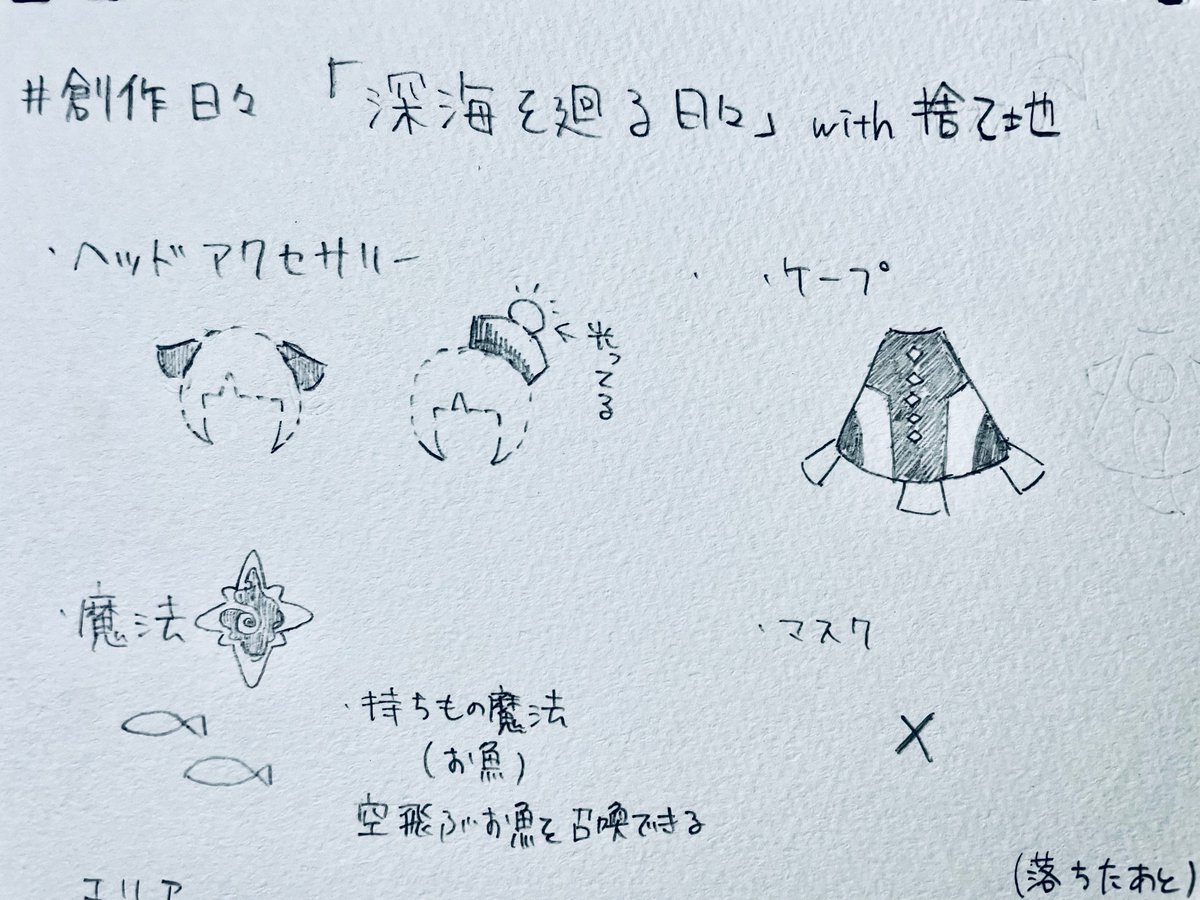 #創作日々 「深海を廻る日々」with 捨て地
・ヘッドアクセサリー
光ってる
・ケープ
・魔法
・持ちもの魔法
(お魚)
空飛ぶお魚を召喚できる
・マスク
×
エリア
(落ちたあと)